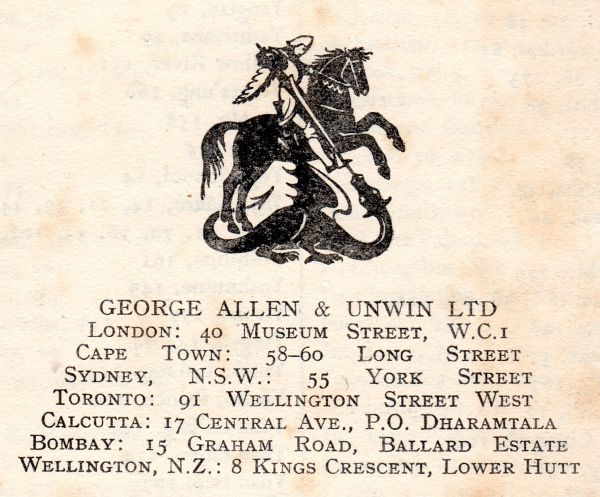 GEORGE ALLEN & UNWIN LTD
LONDON: 40 MUSEUM STREET, W.C.1
CAPE TOWN: 58–60 LONG STREET
SYDNEY, N.S.W.: 55 YORK STREET
TORONTO: 91 WELLINGTON STREET WEST
CALCUTTA: 17 CENTRAL AVE., P.O. DHARAMTALA
BOMBAY: 15 GRAHAM ROAD, BALLARD ESTATE
WELLINGTON, N.Z.: 8 KINGS CRESCENT, LOWER HUTT